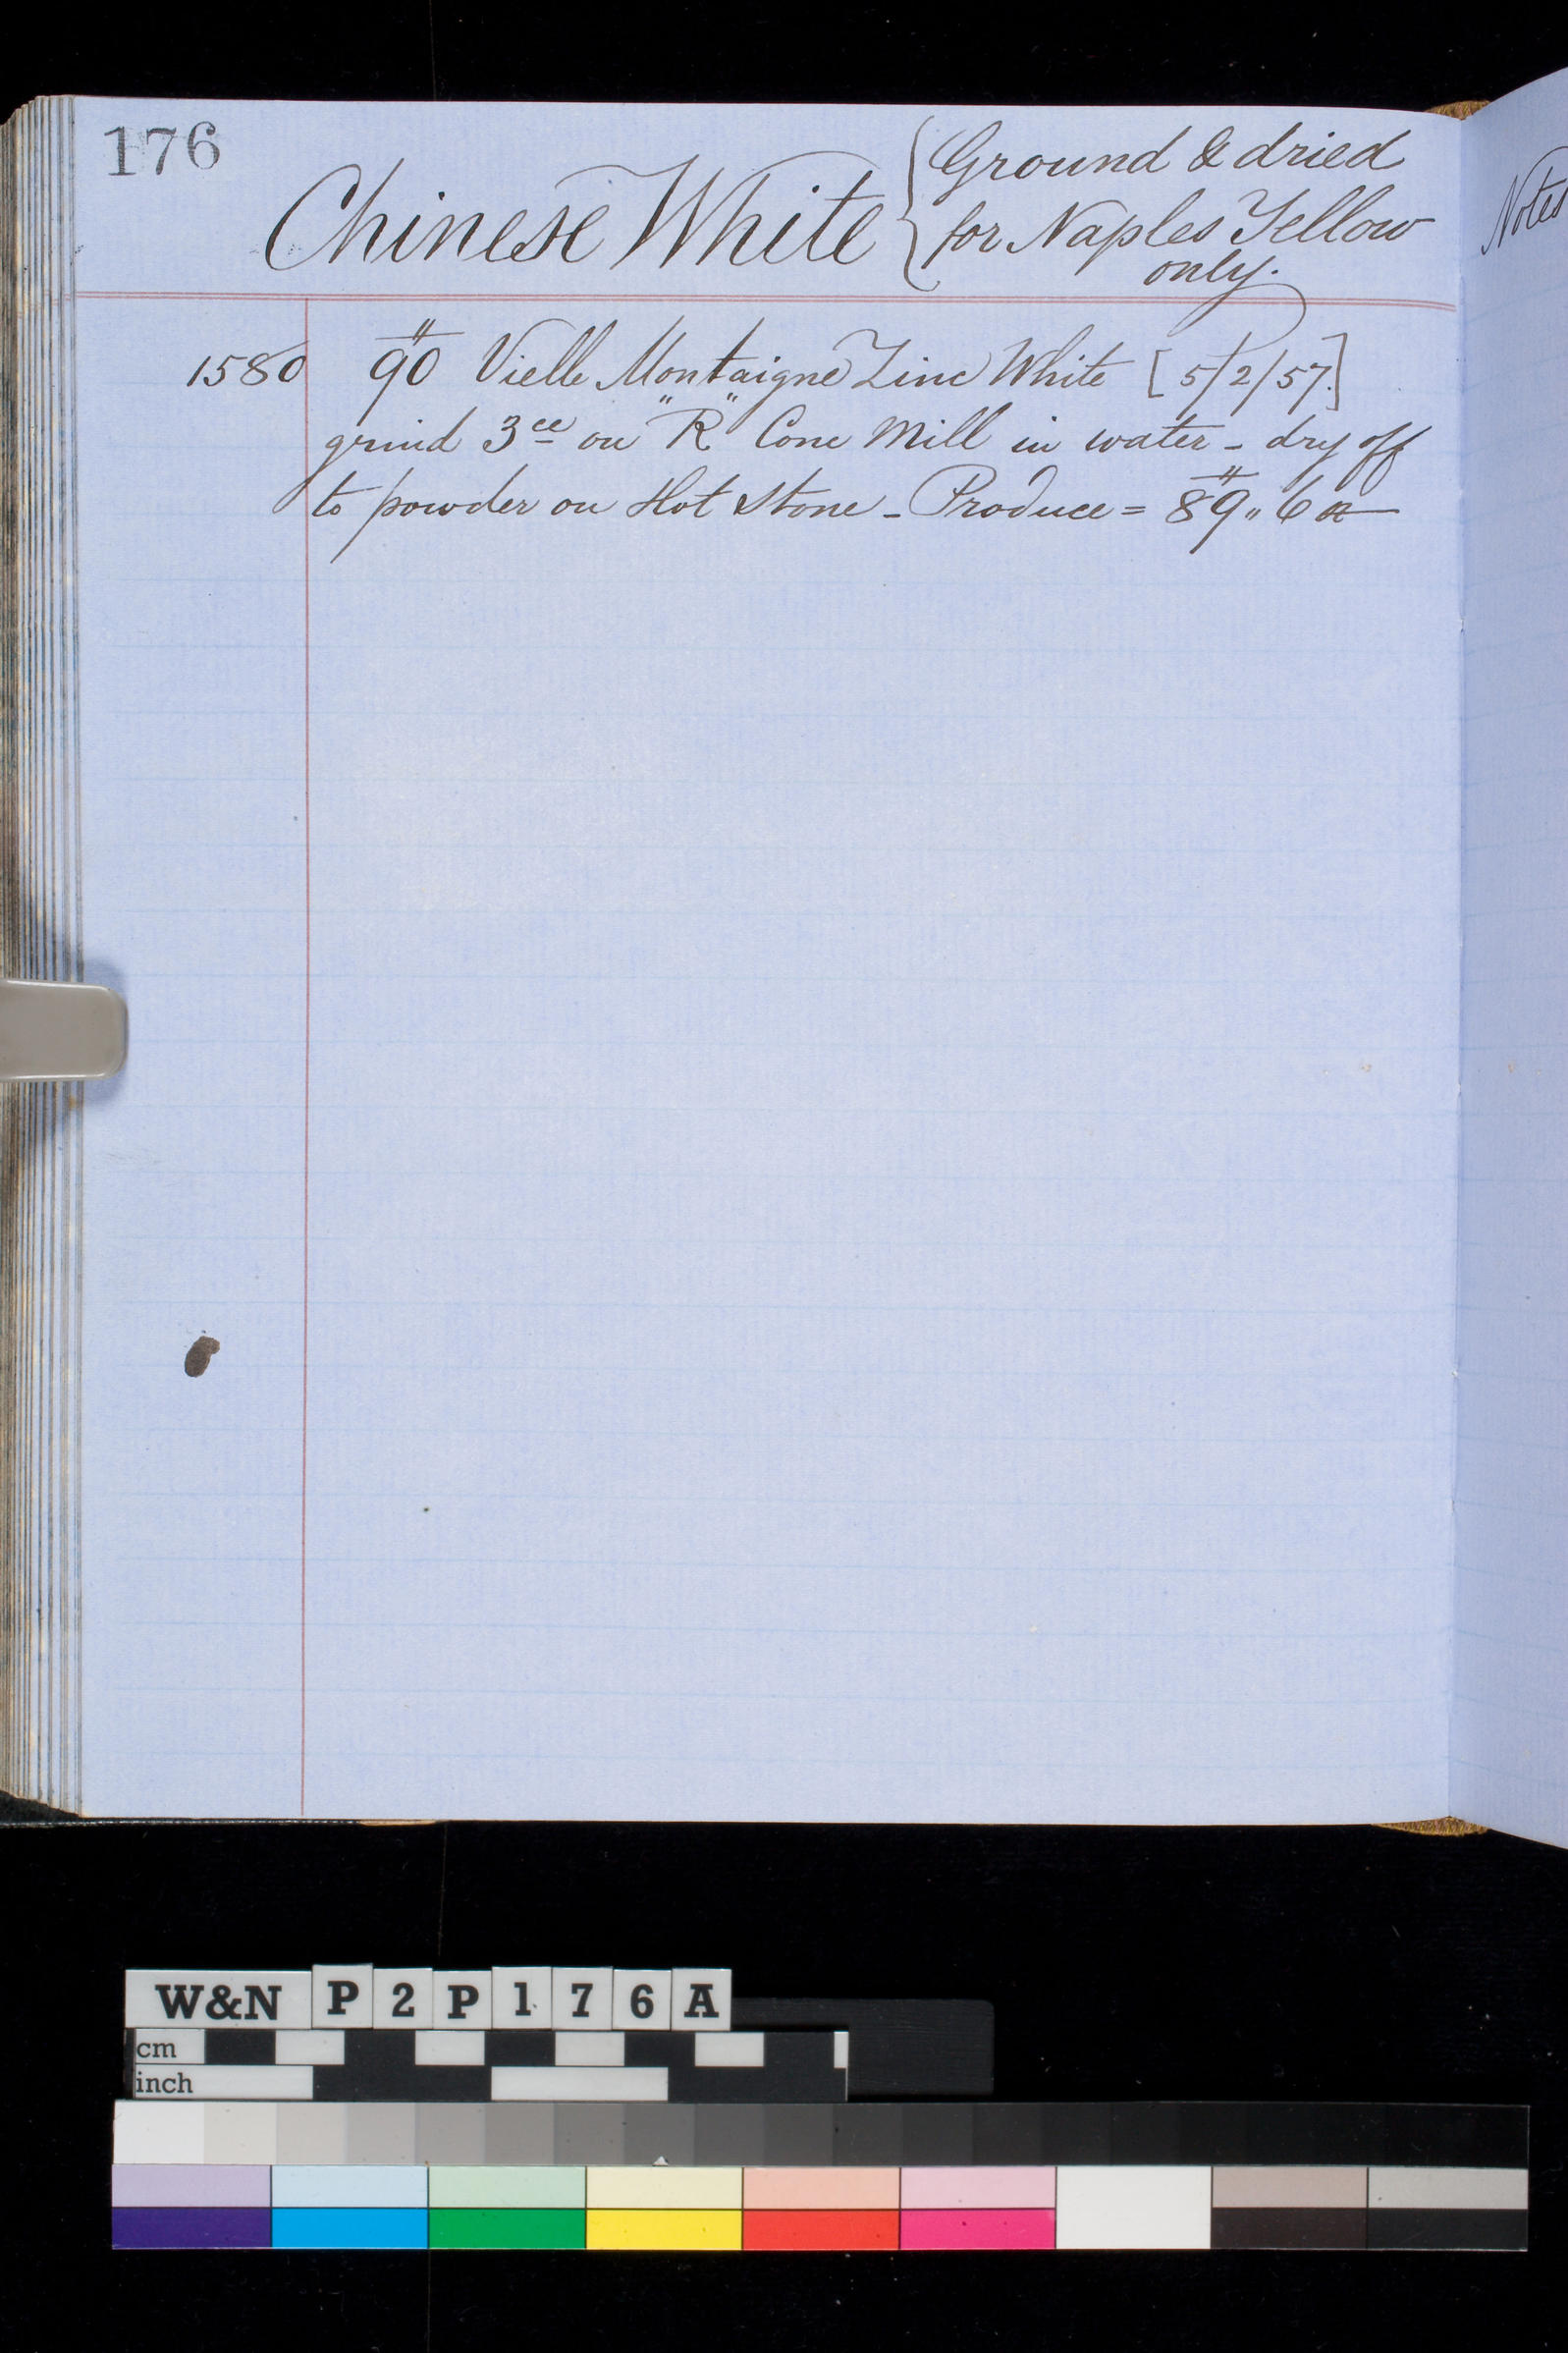 176
Chinese White { Ground & dried
for Naples Yellow
only.
Notes
1580 90 Vielle Montaigne Zinc White [5/2/57.]
grind 3ce on "R" Cone Mill in water - dry off
to powder on Hot Stone - Produce = 89 " 6 oz
W&N P2P176A
cm
inch